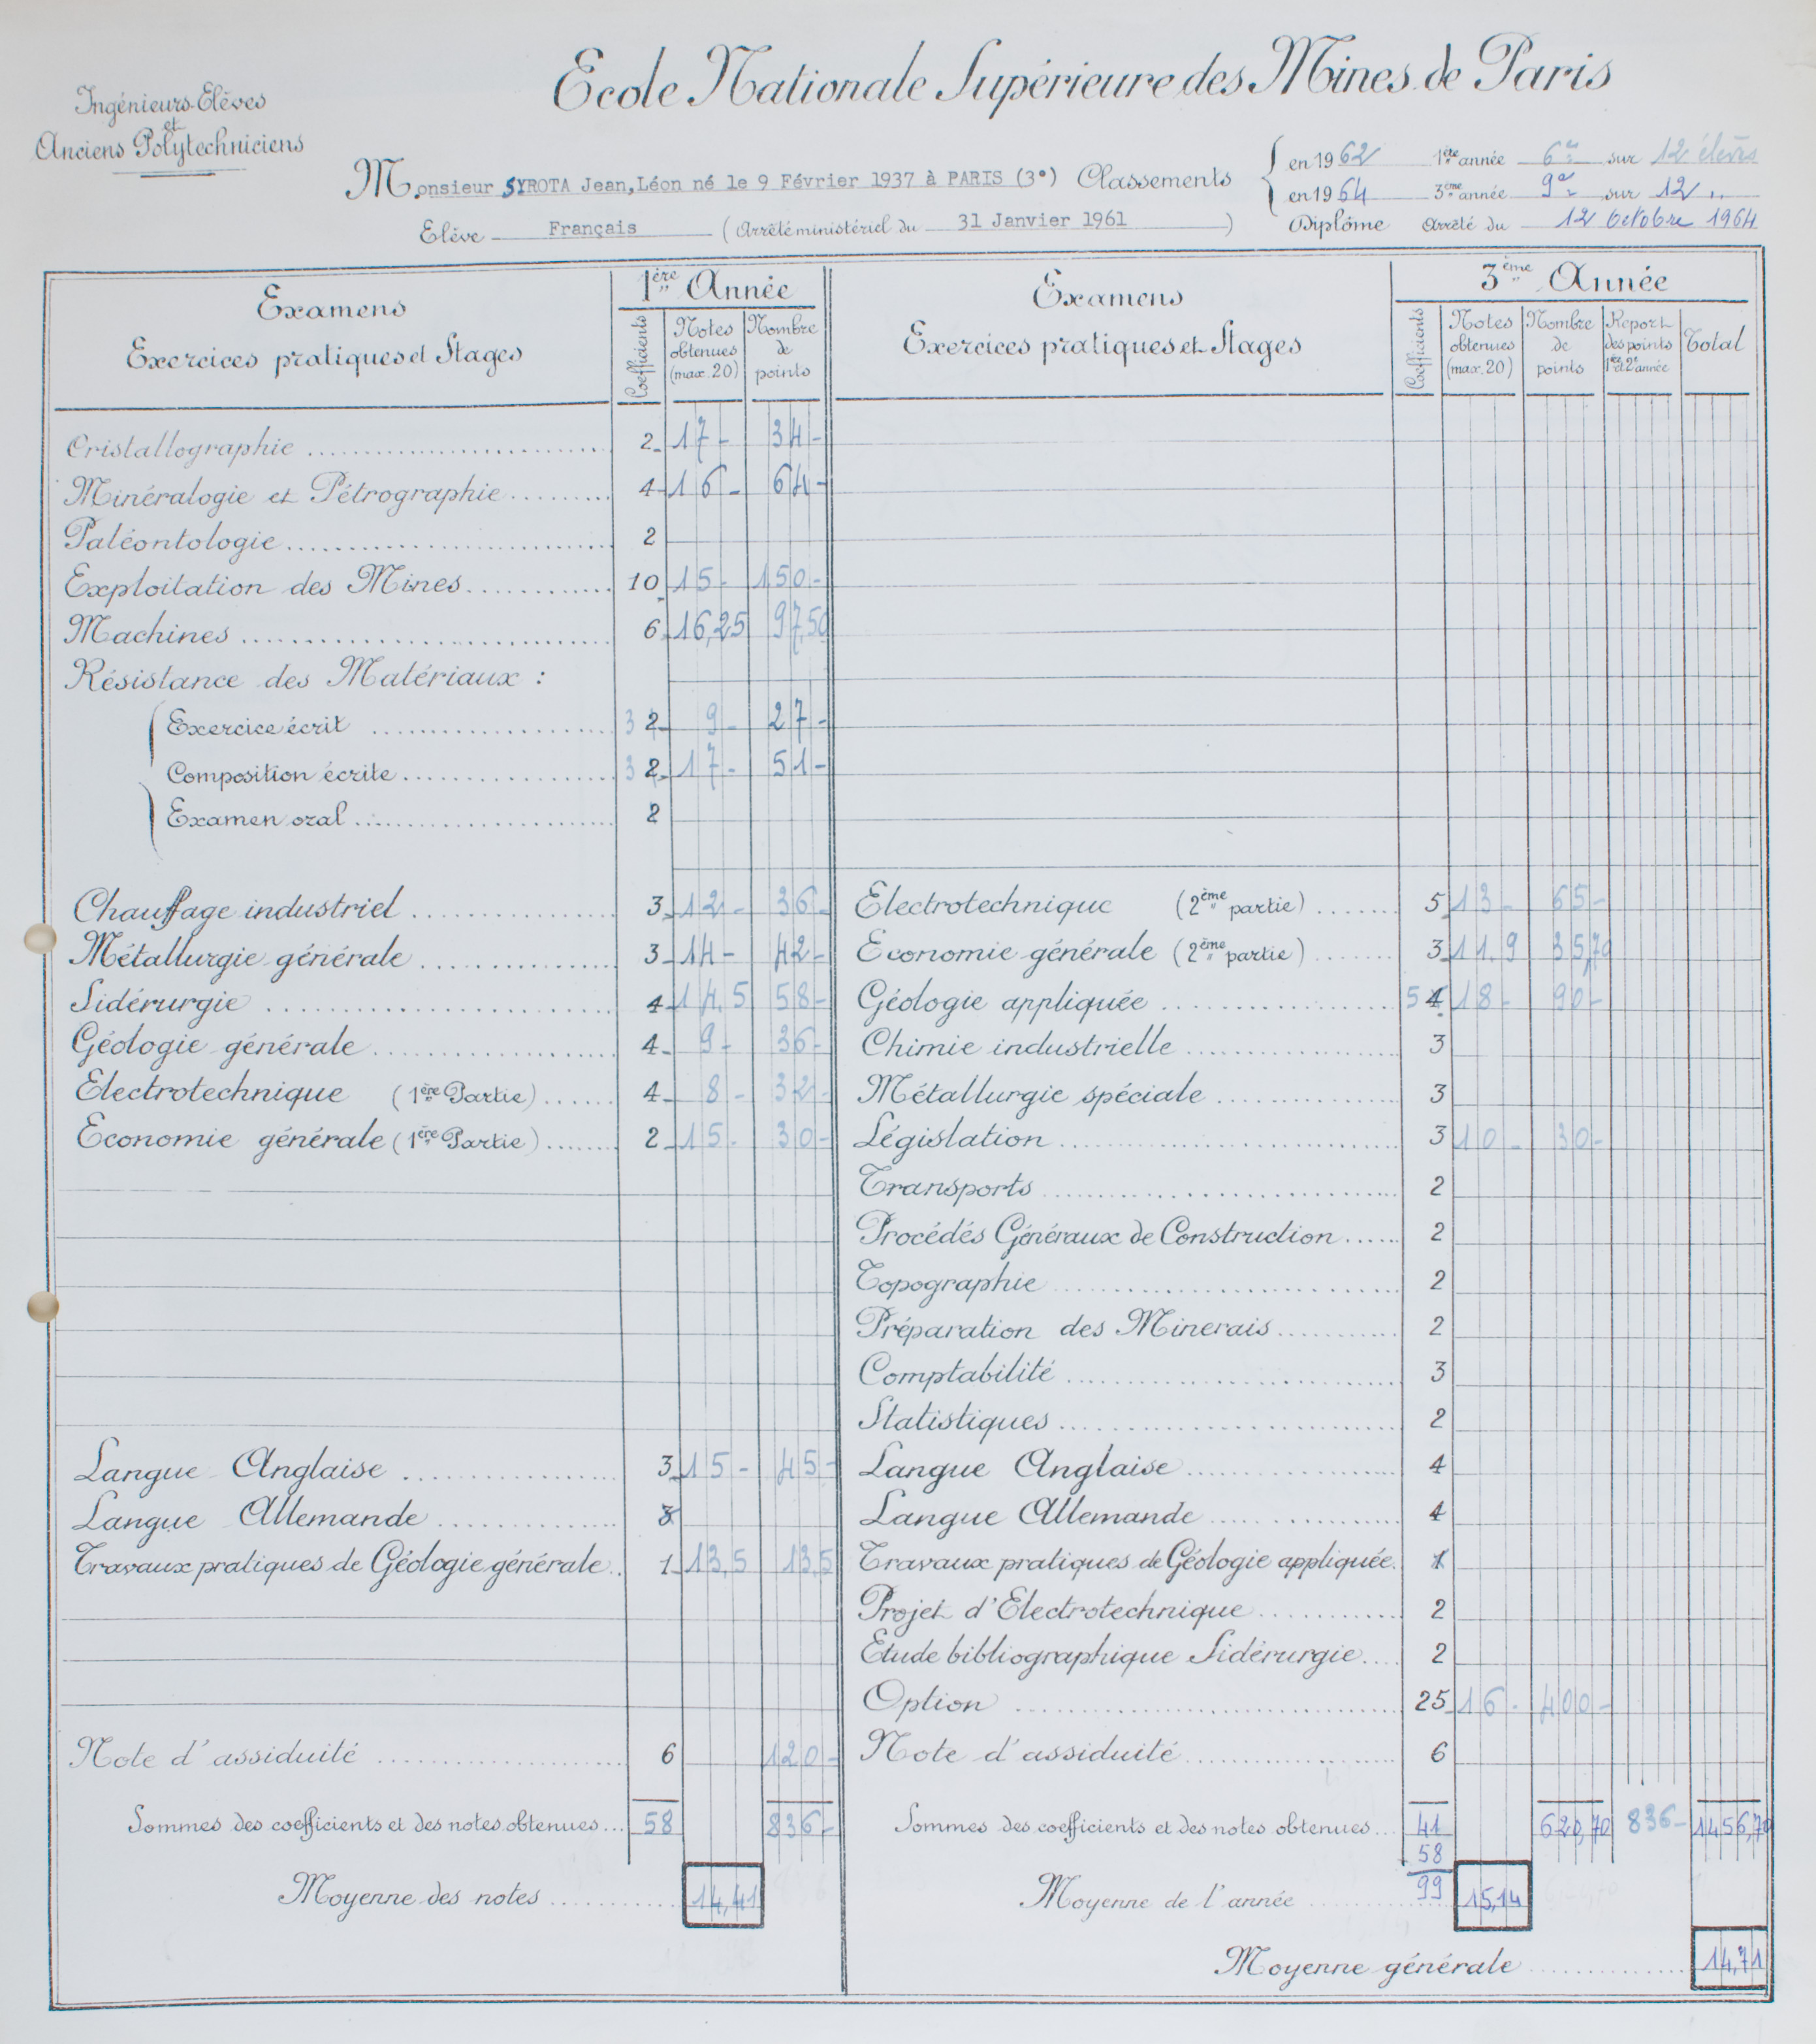 Ecole Nationale Supérieure des Mines de Paris
Ingénieurs-Elèves
et
Anciens Polytechniciens
Monsieur SYROTA Jean,Léon né le 9 Février 1937 à PARIS (3°) Classements
en 1962 1ère année 6e sur 12 élèves
en 1964 3ème année 9e sur 12 "
Elève Français (Arrêté ministériel du 31 Janvier 1961)
Diplôme Arrêté du 12 Octobre 1964
Examens
Exercices pratiques et Stages
1ère Année
Coefficients
Notes obtenues (max. 20)
Nombre de points
Examens
Exercices pratiques et Stages
3ème Année
Coefficients
Notes obtenues (max. 20)
Nombre de points
Report des points 1re et 2e année
Total
Cristallographie 2 17- 34-
Minéralogie et Pétrographie 4 16- 64-
Paléontologie 2
Exploitation des Mines 10 15- 150-
Machines 6 16,25 97,50
Résistance des Matériaux :
Exercice écrit 3 2 9- 27-
Composition écrite 3 2 17- 51-
Examen oral 2
Chauffage industriel 3 12- 36-
Métallurgie générale 3 14- 42-
Sidérurgie 4 14,5 58-
Géologie générale 4 9- 36-
Electrotechnique (1ère Partie) 4 8- 32-
Economie générale (1ère Partie) 2 15- 30-
Langue Anglaise 3 15- 45-
Langue Allemande 3
Travaux pratiques de Géologie générale 1 13,5 13,5
Note d'assiduité 6 120-
Sommes des coefficients et des notes obtenues 58 836-
Moyenne des notes 14,41
Electrotechnique (2ème partie) 5 13- 65-
Economie générale (2ème partie) 3 11,9 35,70
Géologie appliquée 5 4 18- 90-
Chimie industrielle 3
Métallurgie spéciale 3
Législation 3 10- 30-
Transports 2
Procédés Généraux de Construction 2
Topographie 2
Préparation des Minerais 2
Comptabilité 3
Statistiques 2
Langue Anglaise 4
Langue Allemande 4
Travaux pratiques de Géologie appliquée 1
Projet d'Electrotechnique 2
Etude bibliographique Sidérurgie 2
Option 25 16- 400-
Note d'assiduité 6
Sommes des coefficients et des notes obtenues 41 620,70 836- 1456,70
58
99
Moyenne de l'année 15,14
Moyenne générale 14,71